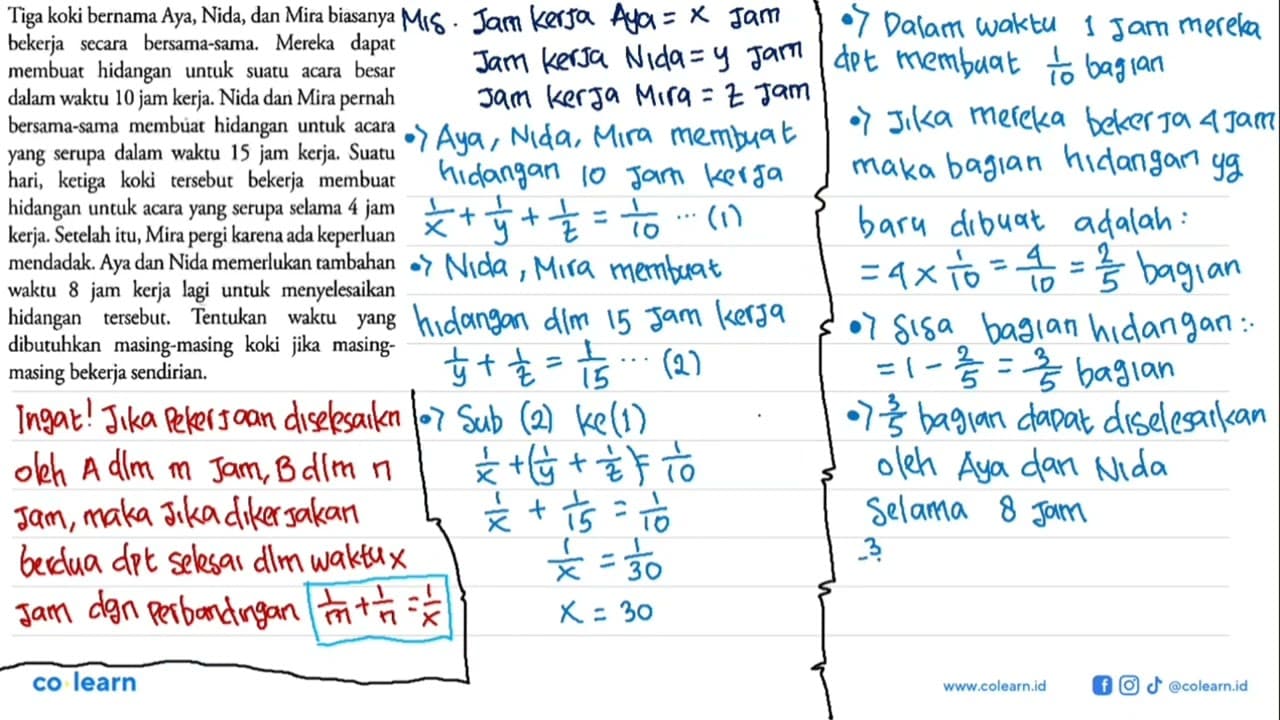 Tiga koki bernama Aya, Nida, dan Mira biasanya
bekerja secara bersama-sama. Mereka dapat
membuat hidangan untuk suatu acara besar
dalam waktu 10 jam kerja. Nida dan Mira pernah
bersama-sama membuat hidangan untuk acara
yang serupa dalam waktu 15 jam kerja. Suatu
hari, ketiga koki tersebut bekerja membuat
hidangan untuk acara yang serupa selama 4 jam
kerja. Setelah itu, Mira pergi karena ada keperluan
mendadak. Aya dan Nida memerlukan tambahan
waktu 8 jam kerja lagi untuk menyelesaikan
hidangan tersebut. Tentukan waktu yang
dibutuhkan masing-masing koki jika masing-
masing bekerja sendirian.
Ingat! Jika Pekerjaan diselesaikn
oleh A dlm m Jam, B dlm n
Jam, maka Jika dikerjakan
berdua dpt selesai dlm waktu x
Jam dgn Perbandingan 1/m + 1/n = 1/x
Mis. Jam kerja Aya = x Jam
Jam kerja Nida = y Jam
Jam kerja Mira = z Jam
•> Aya, Nida, Mira membuat
hidangan 10 Jam kerja
1/x + 1/y + 1/z = 1/10 ... (1)
•> Nida, Mira membuat
hidangan dlm 15 Jam kerja
1/y + 1/z = 1/15 ... (2)
•> Sub (2) ke (1)
1/x + (1/y + 1/z) = 1/10
1/x + 1/15 = 1/10
1/x = 1/30
x = 30
•> Dalam waktu 1 Jam mereka
dpt membuat 1/10 bagian
•> Jika mereka bekerja 4 Jam
maka bagian hidangan yg
baru dibuat adalah :
= 4 x 1/10 = 4/10 = 2/5 bagian
•> Sisa bagian hidangan :.
= 1 - 2/5 = 3/5 bagian
•> 3/5 bagian dapat diselesaikan
oleh Aya dan Nida
Selama 8 Jam
3
co learn
www.colearn.id
@colearn.id